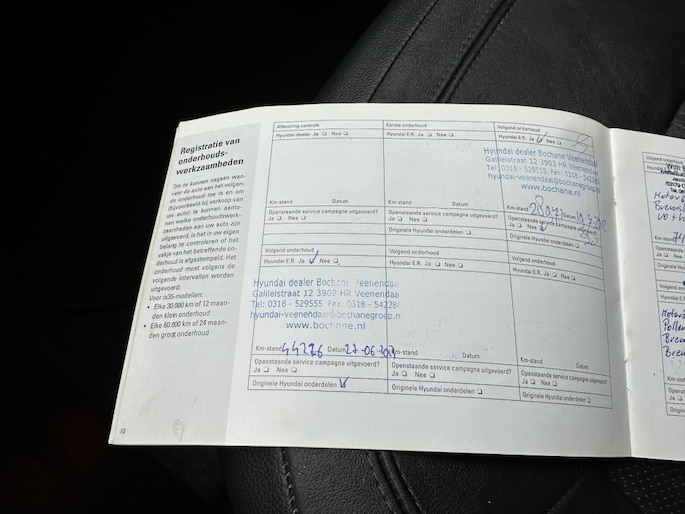 Registratie van
onderhouds-
werkzaamheden
Om te kunnen nagaan wan-
neer de auto aan het volgen-
de onderhoud toe is en om
(bijvoorbeeld bij verkoop van
uw auto) te kunnen aanto-
nen welke onderhoudswerk-
zaamheden aan uw auto zijn
uitgevoerd, is het in uw eigen
belang te controleren of het
vakje van het betreffende on-
derhoud is afgestempeld. Het
onderhoud moet volgens de
volgende intervallen worden
uitgevoerd:
Voor ix35-modellen:
• Elke 30.000 km of 12 maan-
den klein onderhoud
• Elke 60.000 km of 24 maan-
den groot onderhoud
10
Aflevering controle
Hyundai dealer Ja Nee
Km-stand Datum
Openstaande service campagne uitgevoerd?
Ja Nee
Eerste onderhoud
Hyundai E.R. Ja Nee
Km-stand Datum
Openstaande service campagne uitgevoerd?
Ja Nee
Originele Hyundai onderdelen
Volgend onderhoud
Hyundai E.R. Ja Nee
Hyundai dealer Bochane Veenendaal
Galileistraat 12 3902 HR Veenendaal
Tel: 0318 - 529555 Fax: 0318 - 54228
hyundai-veenendaal@bochanegroep.n
www.bochane.nl
Km-stand Datum
Openstaande service campagne uitgevoerd?
Ja Nee
Originele Hyundai onderdelen
Volgend onderhoud
Hyundai E.R. Ja Nee
Hyundai dealer Bochane Veenendaa
Galileistraat 12 3902 HR Veenendaa
Tel: 0318 - 529555 Fax: 0318 - 54228
hyundai-veenendaal@bochanegroep.n
www.bochane.nl
Km-stand 44226 Datum 27-06
Openstaande service campagne uitgevoerd?
Ja Nee
Originele Hyundai onderdelen
Volgend onderhoud
Hyundai E.R. Ja Nee
Km-stand Datum
Openstaande service campagne uitgevoerd?
Ja Nee
Originele Hyundai onderdelen
Volgend onderhoud
Hyundai E.R. Ja Nee
Km-stand Datum
Openstaande service campagne uitgevoerd?
Ja Nee
Originele Hyundai onderdelen